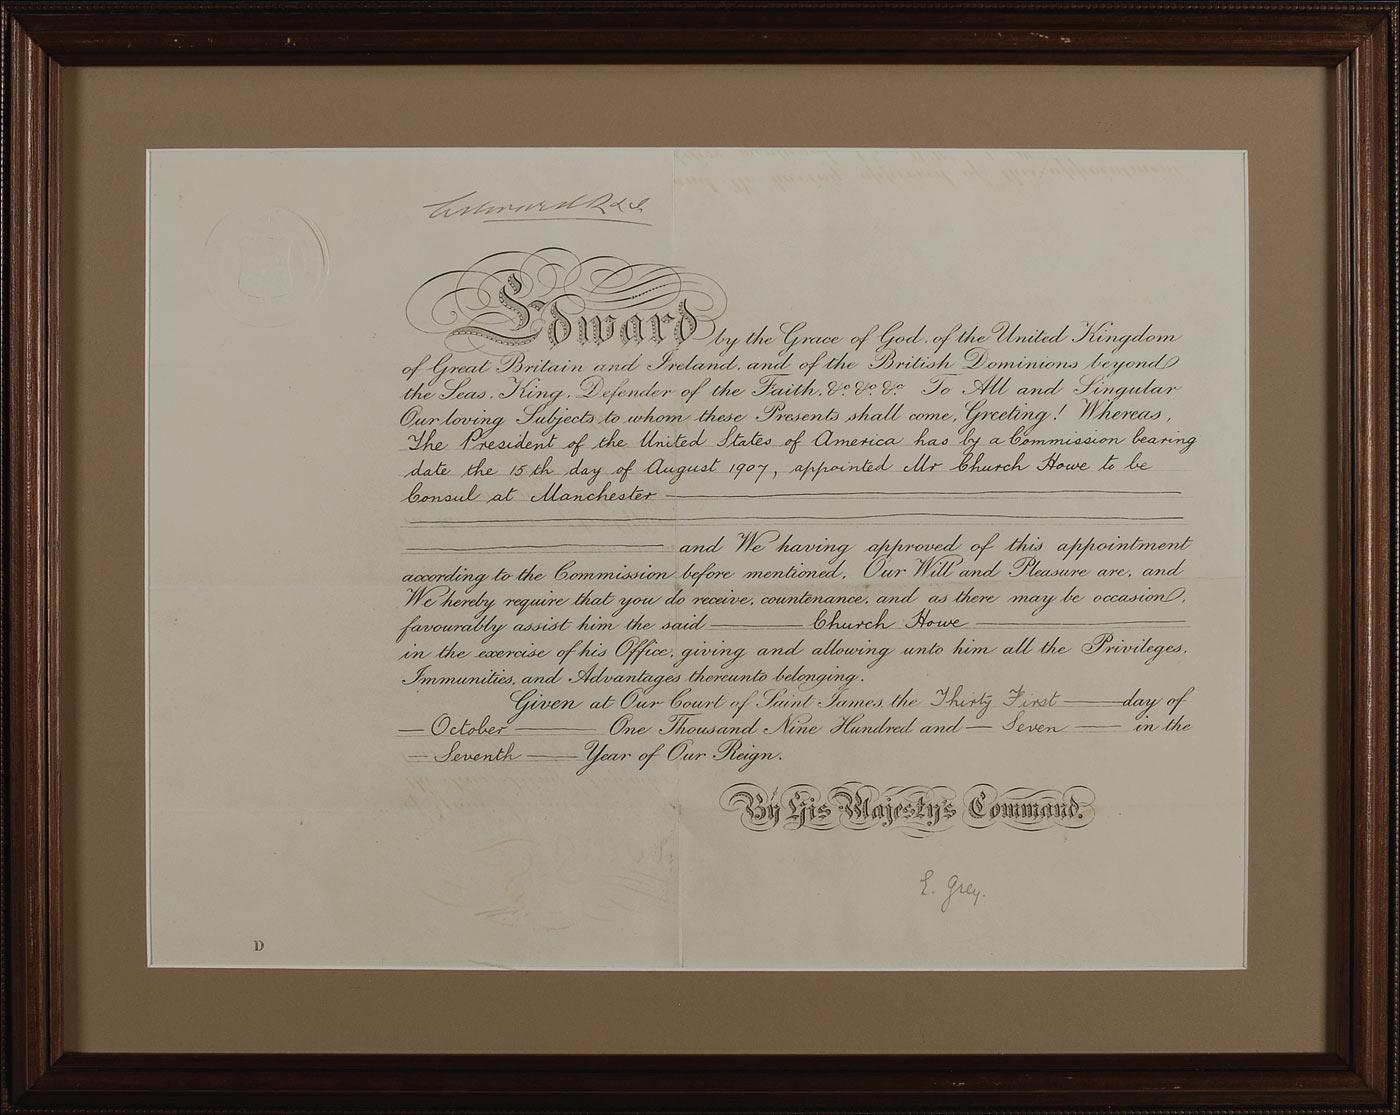 Edward R & I
Edward by the Grace of God, of the United Kingdom
of Great Britain and Ireland, and of the British Dominions beyond
the Seas, King, Defender of the Faith, &c. &c. &c. To All and Singular
Our loving Subjects to whom these Presents shall come, Greeting! Whereas,
The President of the United States of America has by a Commission bearing
date the 15th day of August 1907, appointed Mr Church Howe to be
Consul at Manchester
and We having approved of this appointment
according to the Commission before mentioned, Our Will and Pleasure are, and
We hereby require that you do receive, countenance, and as there may be occasion,
favourably assist him the said Church Howe
in the exercise of his Office, giving and allowing unto him all the Privileges,
Immunities, and Advantages thereunto belonging.
Given at Our Court of Saint James, the Thirty First day of
October One Thousand Nine Hundred and Seven in the
Seventh Year of Our Reign.
By His Majesty's Command.
E. Grey.
D